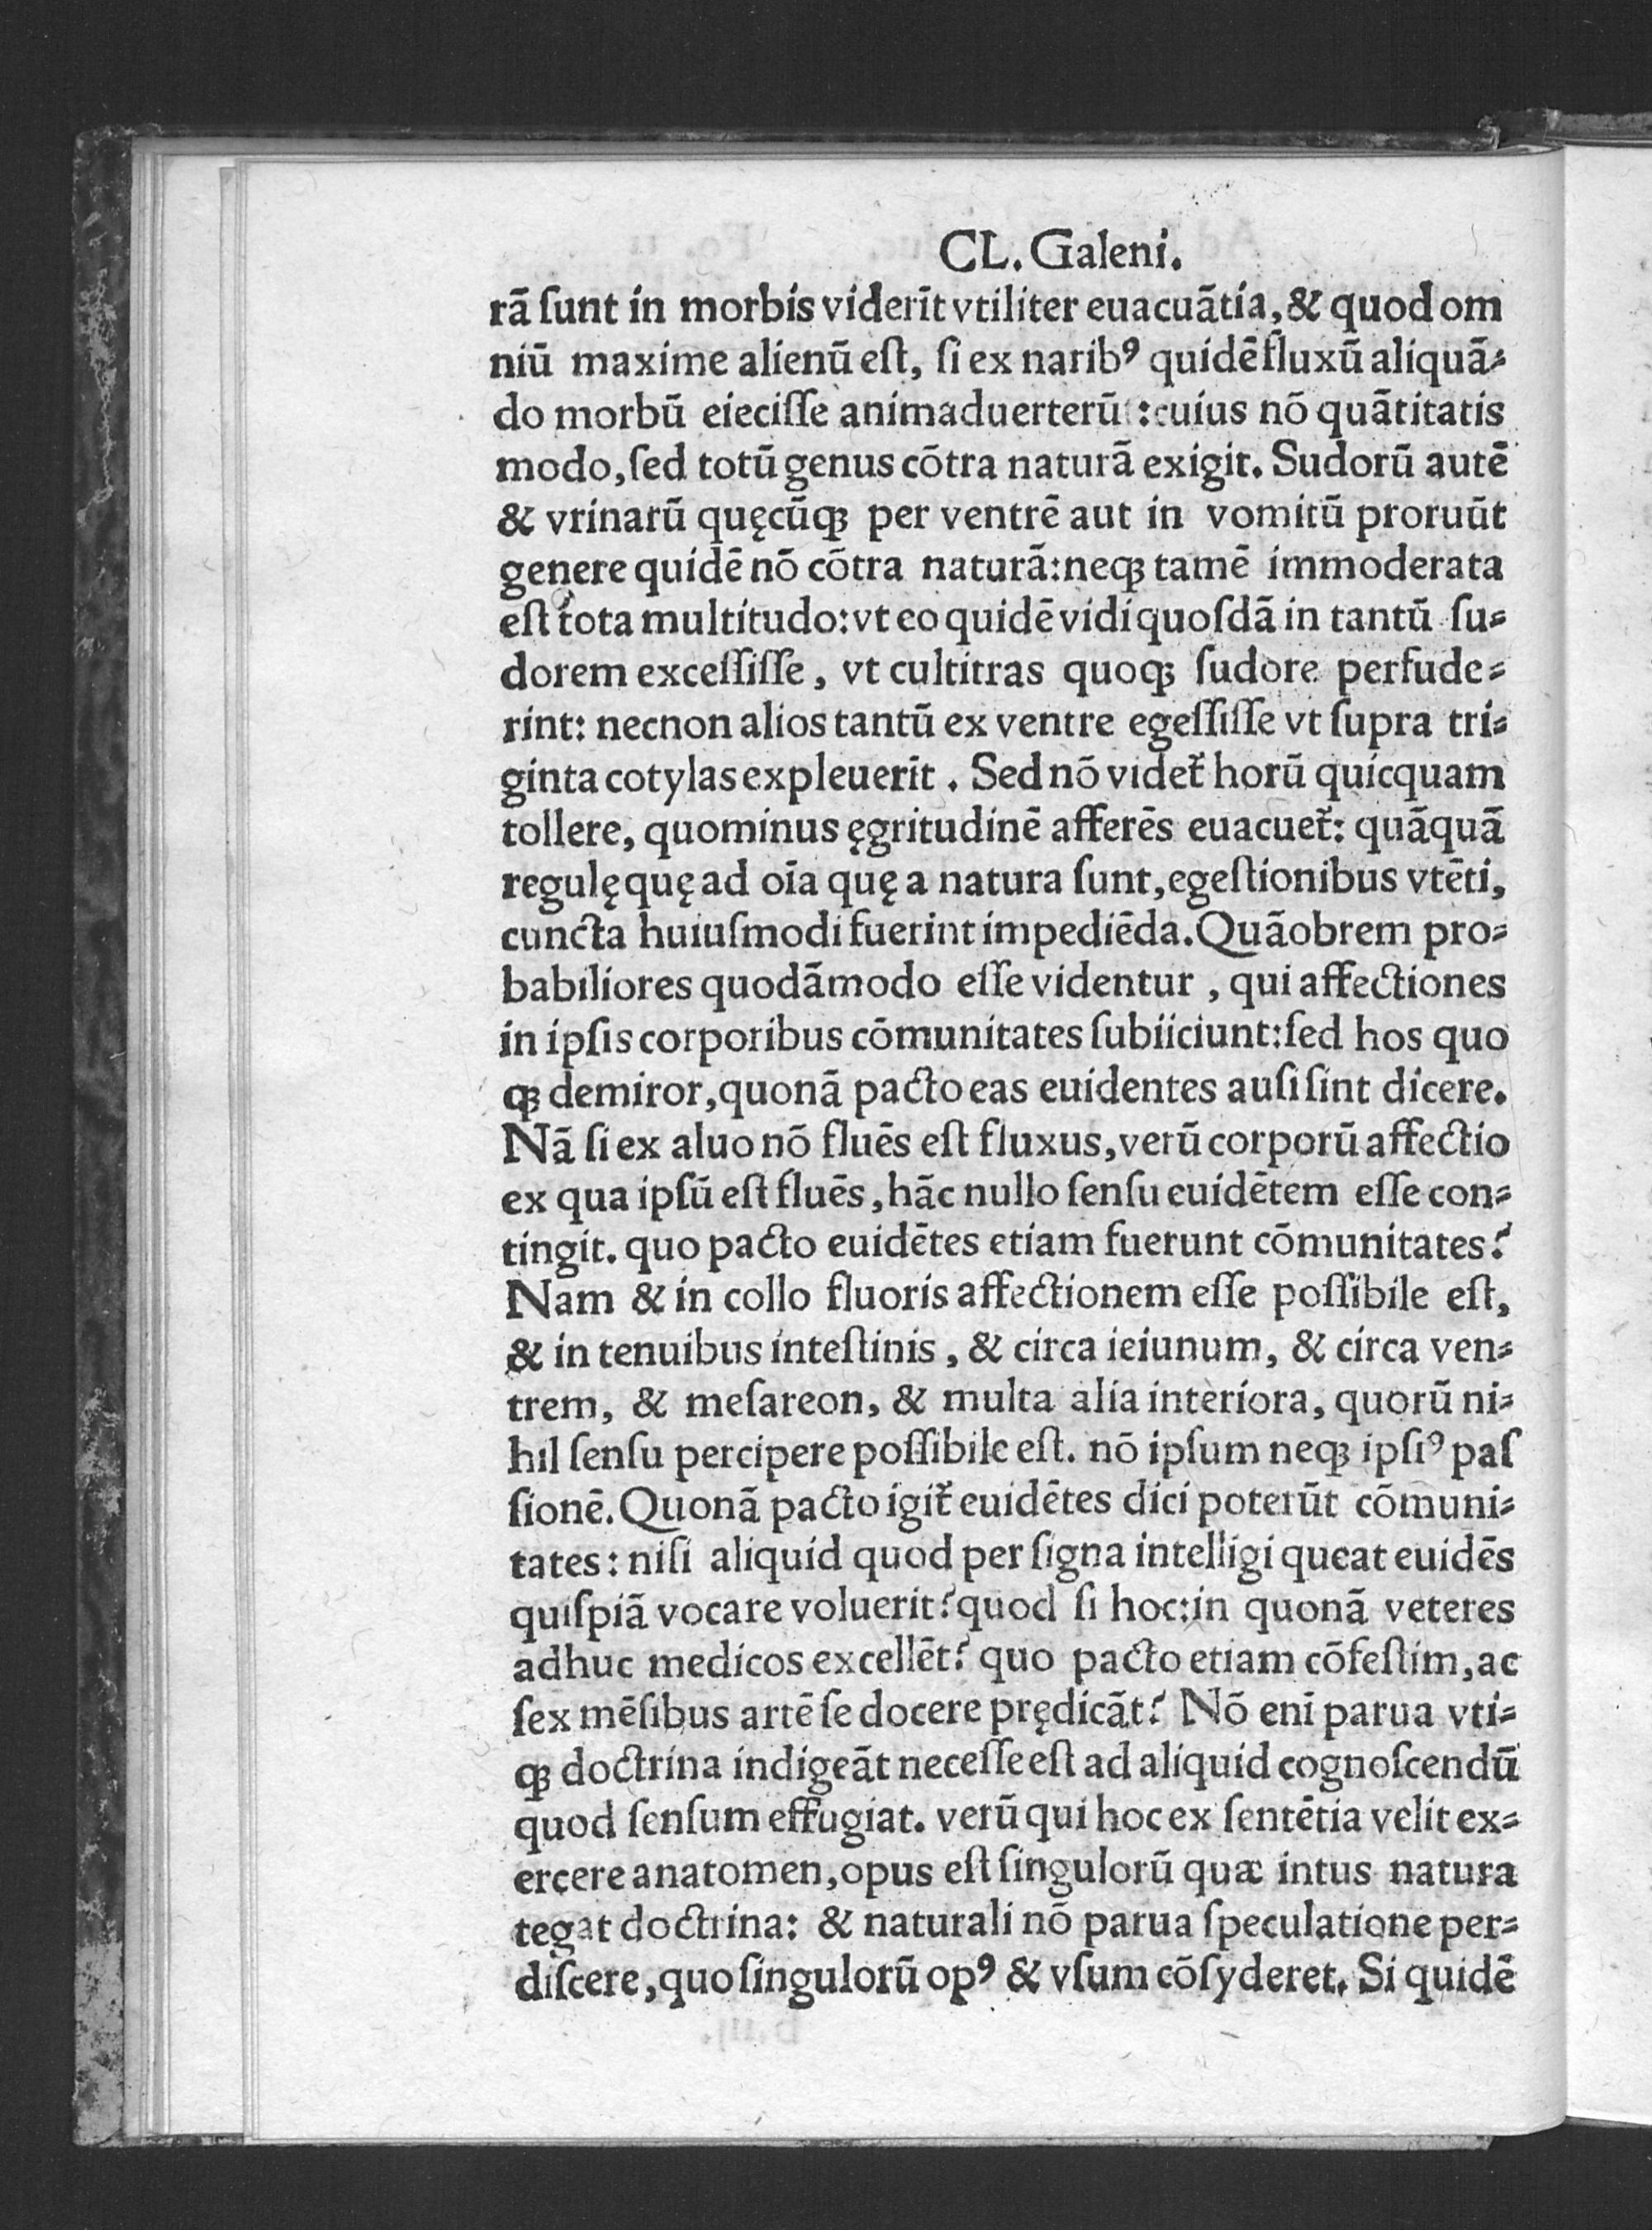 CL. Galeni.
rā ſunt in morbis viderīt vtiliter euacuātia, & quod om
niū maxime alienū eſt, ſi ex naribꝰ quidē fluxū aliquā⸗
do morbū eieciſſe animaduerterū :cuius nō quātitatis
modo, ſed totū genus cōtra naturā exigit. Sudorū autē
& vrinarū quęcūqꝫ per ventrē aut in vomitū proruūt
genere quidē nō cōtra naturā: neqꝫ tamē immoderata
eſt tota multitudo: vt eo quidē vidi quoſdā in tantū ſu⸗
dorem exceſſiſſe, vt cultitras quoqꝫ ſudore perfude⸗
rint: necnon alios tantū ex ventre egeſſiſſe vt ſupra tri⸗
ginta cotylas expleuerīt. Sed nō videt᷑ horū quicquam
tollere, quominus ęgritudinē afferēs euacuet᷑: quāquā
regulę quę ad oīa quę a natura ſunt, egeſtionibus vtēti,
cuncta huiuſmodi fuerint impediēda. Quāobrem pro⸗
babiliores quodāmodo eſſe videntur, qui affectiones
in ipſis corporibus cōmunitates ſubiiciunt: ſed hos quo
qꝫ demiror, quonā pacto eas euidentes auſi ſint dicere.
Nā ſi ex aluo nō fluēs eſt fluxus, verū corporū affectio
ex qua ipſū eſt fluēs, hāc nullo ſenſu euidētem eſſe con⸗
tingit. quo pacto euidētes etiam fuerunt cōmunitates?
Nam & in collo fluoris affectionem eſſe poſſibile eſt,
& in tenuibus inteſtinis, & circa ieiunum, & circa ven⸗
trem, & meſareon, & multa alia interiora, quorū ni⸗
hil ſenſu percipere poſſibile eſt. nō ipſum neqꝫ ipſiꝰ paſ
ſionē. Quonā pacto igit᷑ euidētes dici poterūt cōmuni⸗
tates: niſi aliquid quod per ſigna intelligi queat euidēs
quiſpiā vocare voluerit? quod ſi hoc: in quonā veteres
adhuc medicos excellēt? quo pacto etiam cōfeſtim, ac
ſex mēſibus artē ſe docere prędicāt? Nō enī parua vti⸗
qꝫ doctrina indigeāt neceſſe eſt ad aliquid cognoſcendū
quod ſenſum effugiat. verū qui hoc ex ſentētia velit ex⸗
ercere anatomen, opus eſt ſingulorū quæ intus natura
tegat doctrina: & naturali nō parua ſpeculatione per⸗
diſcere, quo ſingulorū opꝰ & vſum cōſyderet. Si quidē